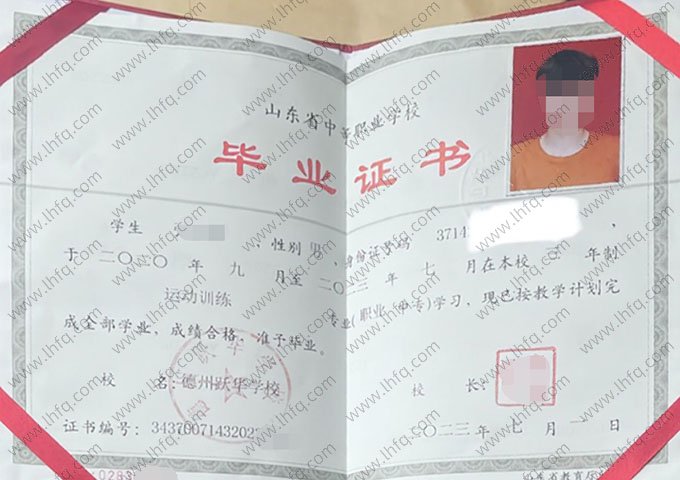 山东省中等职业学校
毕业证书
学生 ，性别 男 ，身份证号码 3714 ，
于 二〇二〇 年 九 月至 二〇二三 年 七 月在本校 三 年制
运动训练 专业(职业中专)学习，现已按教学计划完
成全部学业，成绩合格，准予毕业。
校 名：德州跃华学校
校 长：
证书编号：3437007143202
二〇二三 年 七 月 一 日
0283
山东省教育厅
www.lhfq.com